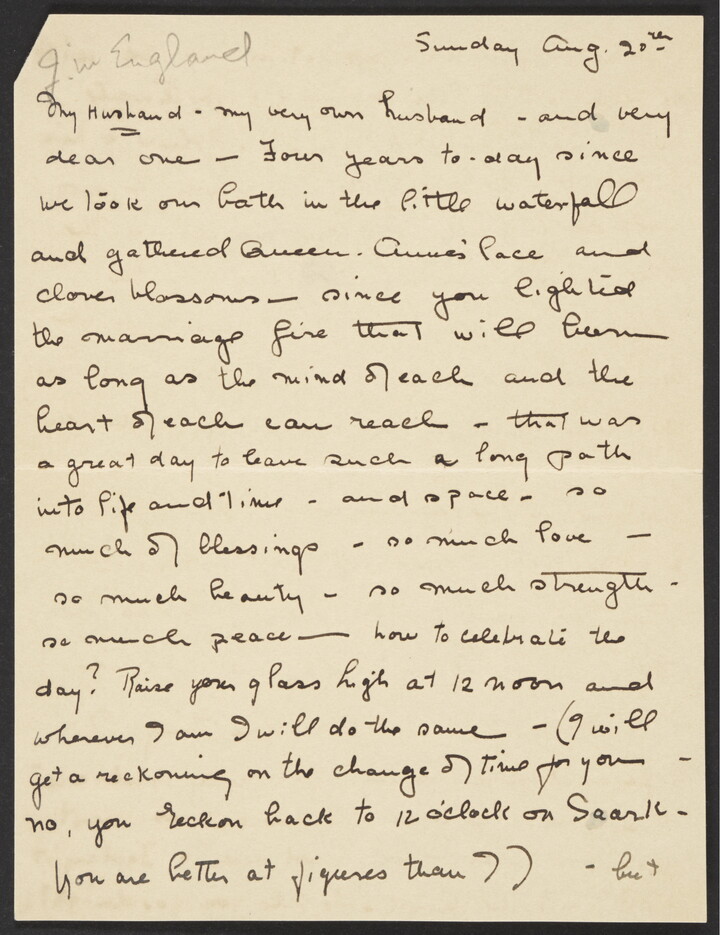 Sunday Aug. 20th
England
My Husband - my very own husband - and very
dear one - Four years to-day since
we took our bath in the little waterfall
and gathered Queen-Anne's lace and
clover blossoms - since you lighted
the marriage fire that will burn
as long as the mind of each and the
heart of each can reach - that was
a great day to leave such a long path
into life and time - and space - so
much of blessings - so much love -
so much beauty - so much strength -
so much peace - how to celebrate the
day? Raise your glass high at 12 noon and
wherever I am I will do the same - (I will
get a reckoning on the change of time for you -
no, you reckon back to 12 o'clock on Saark -
You are better at figures than I) - but